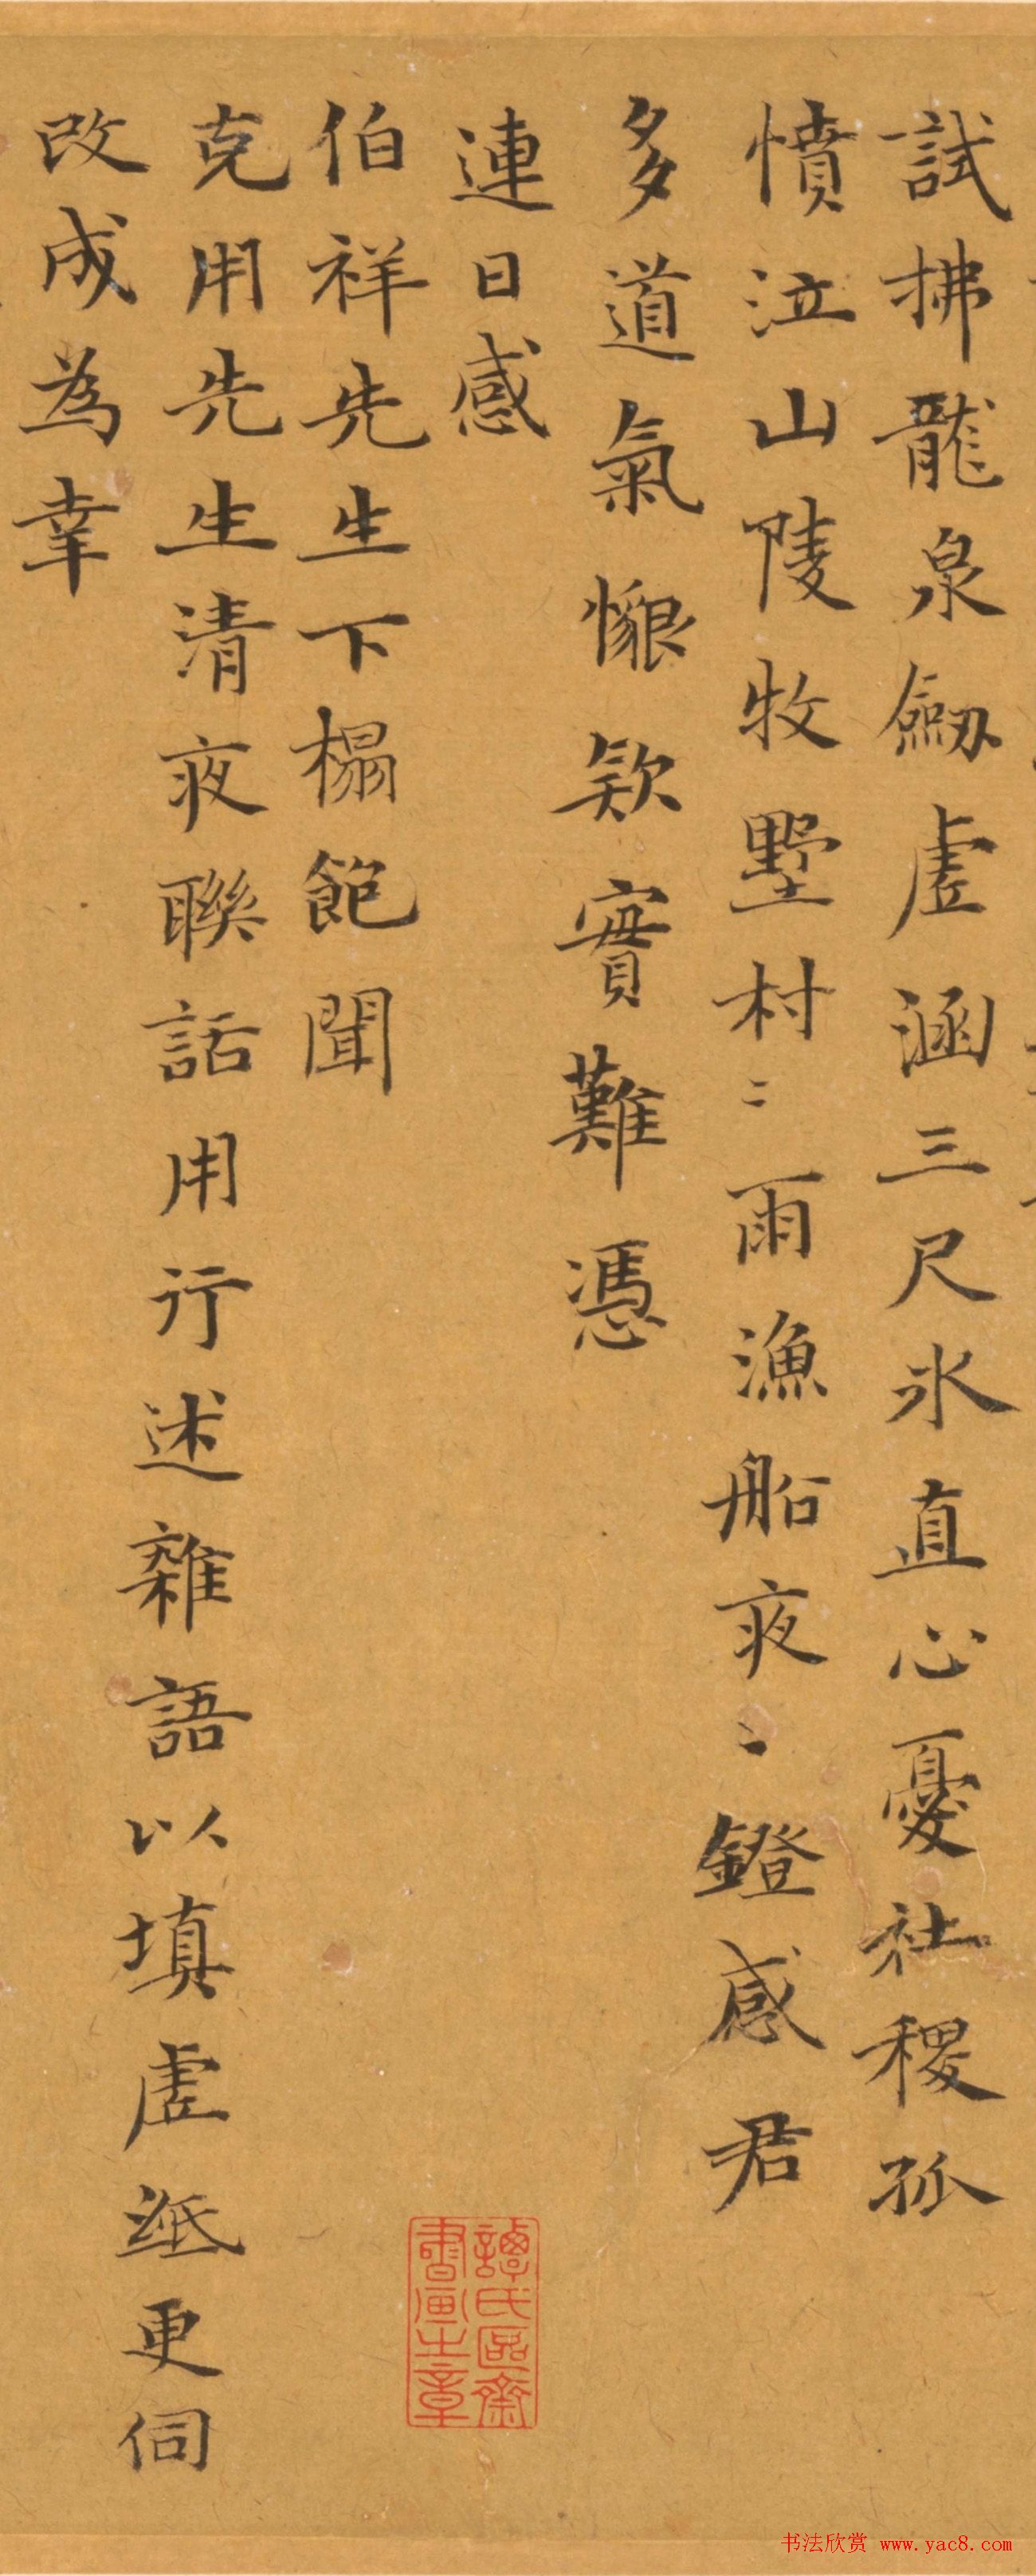 試拂龍泉劔虛涵三尺氷直心憂社稷孤
憤泣山陵牧墅村〻雨漁船夜〻鐙感君
多道氣懇欵實難憑
連日感
伯祥先生下榻飽聞
克用先生清夜聯話用行述雜語以填虛紙更伺
改成為幸
譚氏區齋
書畫之章
书法欣赏 www.yac8.com